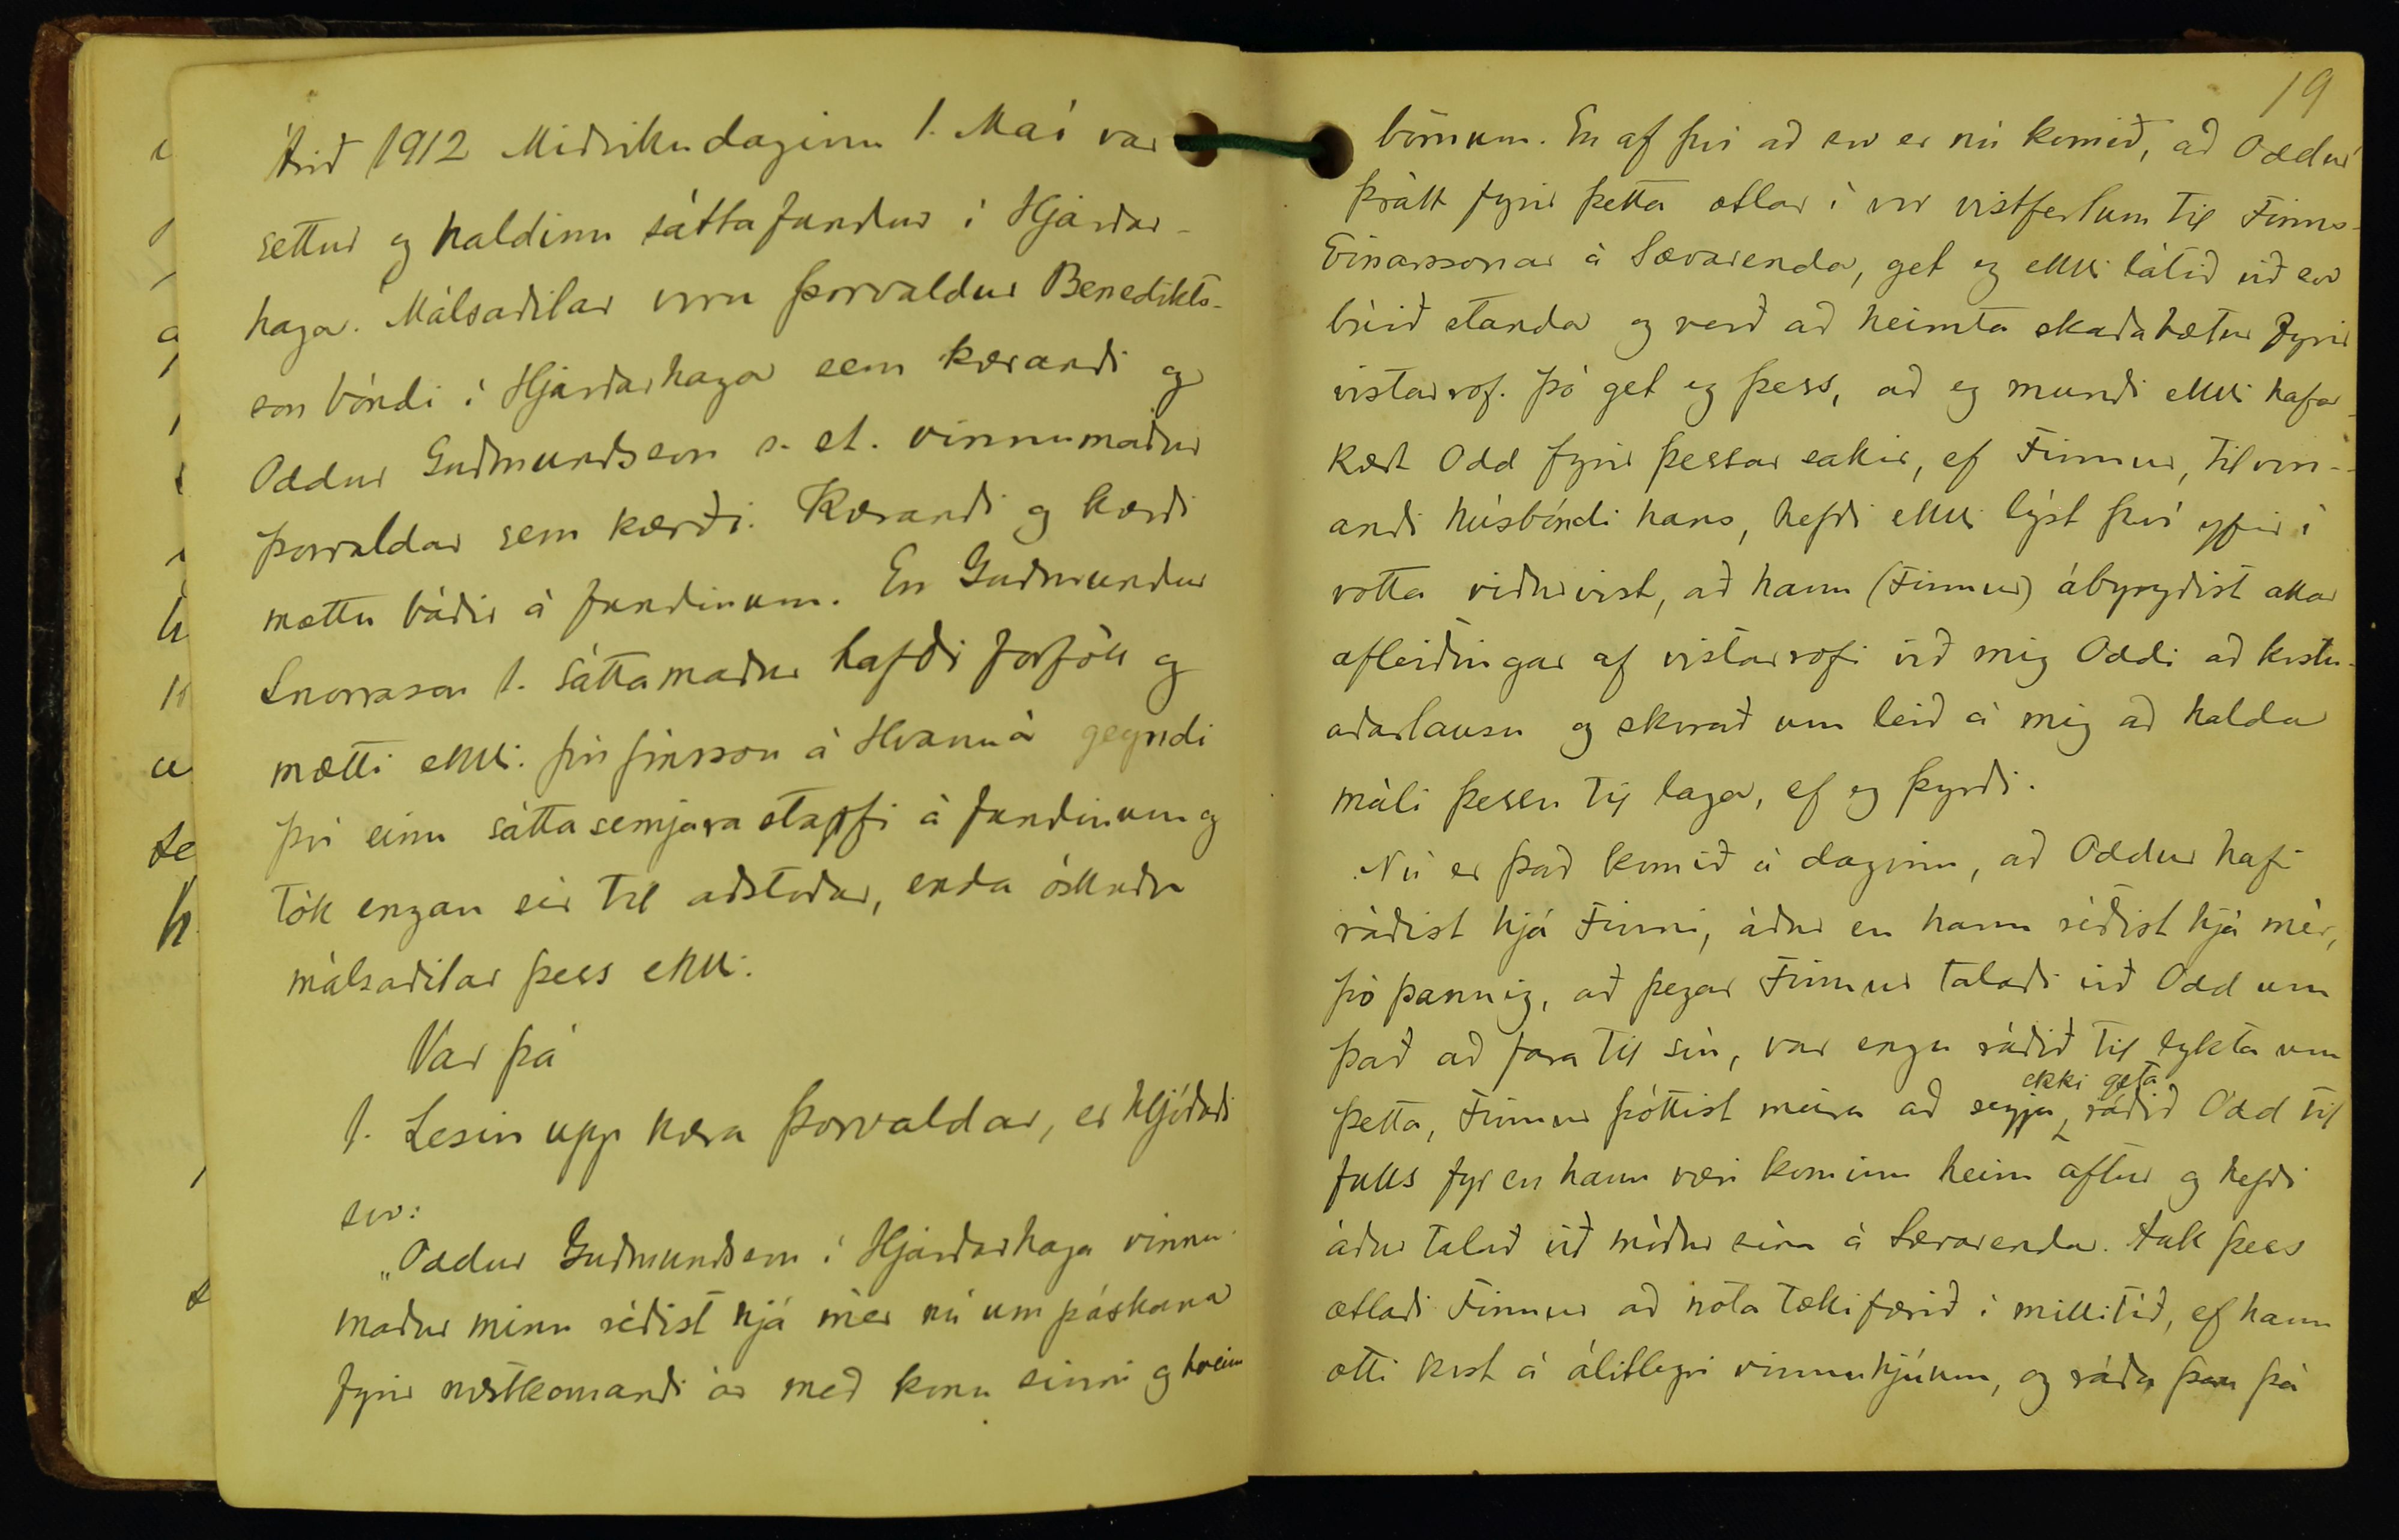 Árið 1912 Miðvikudaginn 1. Maí var
settur og haldinn sáttafundur í Hjarðar-
haga. Málsaðilar voru Þorvaldur Benedikts-
son bóndi í Hjarðarhaga sem kærandi og
Oddur Guðmundsson s. st. vinnumaður
Þorvaldar sem kærði. Kærandi og kærði
mættu báðir á fundinum. En Guðmundur
Snorrason 1. sáttamaður hafði forföll og
mætti ekki. Jón Jónsson á Hvanná gegndi
því einn sáttasemjarastarfi á fundinum og
tók engan sér til aðstoðar, enda óskuðu
málsaðilar þess ekki.
Var þá
1. Lesin upp kæra Þorvaldar, er hljóðaði
svo:
„Oddur Guðmundsson í Hjarðarhaga vinnu-
maður minn réðist hjá mér nú um páskana
fyrir næstkomandi ár með konu sinni og tveim
19
börnum. En af því að svo er nú komið, að Oddur
þrátt fyrir þetta ætlar í vor vistferlum til Finns
Einarssonar á Sævarenda, get eg ekki látið við svo
búið standa og verð að heimta skaðabætur fyrir
vistarrof. Þó get eg þess, að eg mundi ekki hafa
kært Odd fyrir þessar sakir, ef Finnur, tilvon-
andi húsbóndi hans, hefði ekki lýst því yfir í
votta viðurvist, að hann (Finnur) ábyrgðist allar
afleiðingar af vistarrofi við mig Oddi að kostn-
aðarlausu og skorað um leið á mig að halda
máli þessu til laga, ef eg þyrði.
Nú er það komið á daginn, að Oddur hafi
ráðist hjá Finni, áður en hann réðist hjá mér,
þó þannig, að þegar Finnur talaði við Odd um
það að fara til sín, var engu ráðið til lykta um
ekki geta
þetta, Finnur þóttist meira að segja ráðið Odd til
fulls fyr en hann væri kominn heim aftur og hefði
áður talað við móður sína á Sævarenda. Auk þess
ætlaði Finnur að nota tækifærið í millitíð, ef hann
ætti kost á álitlegri vinnuhjúum, og ráða þau þá